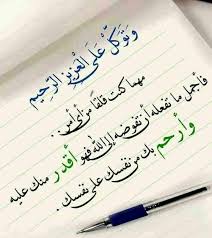 وَتَوَكَّلْ عَلَى الْعَزِيزِ الرَّحِيمِ
مهما كنت قلقًا من أي أمر .
فأجمل ما تفعله أن تفوضه إلى الله فهو أقدر منك عليه
وأرحم بك من نفسك على نفسك .